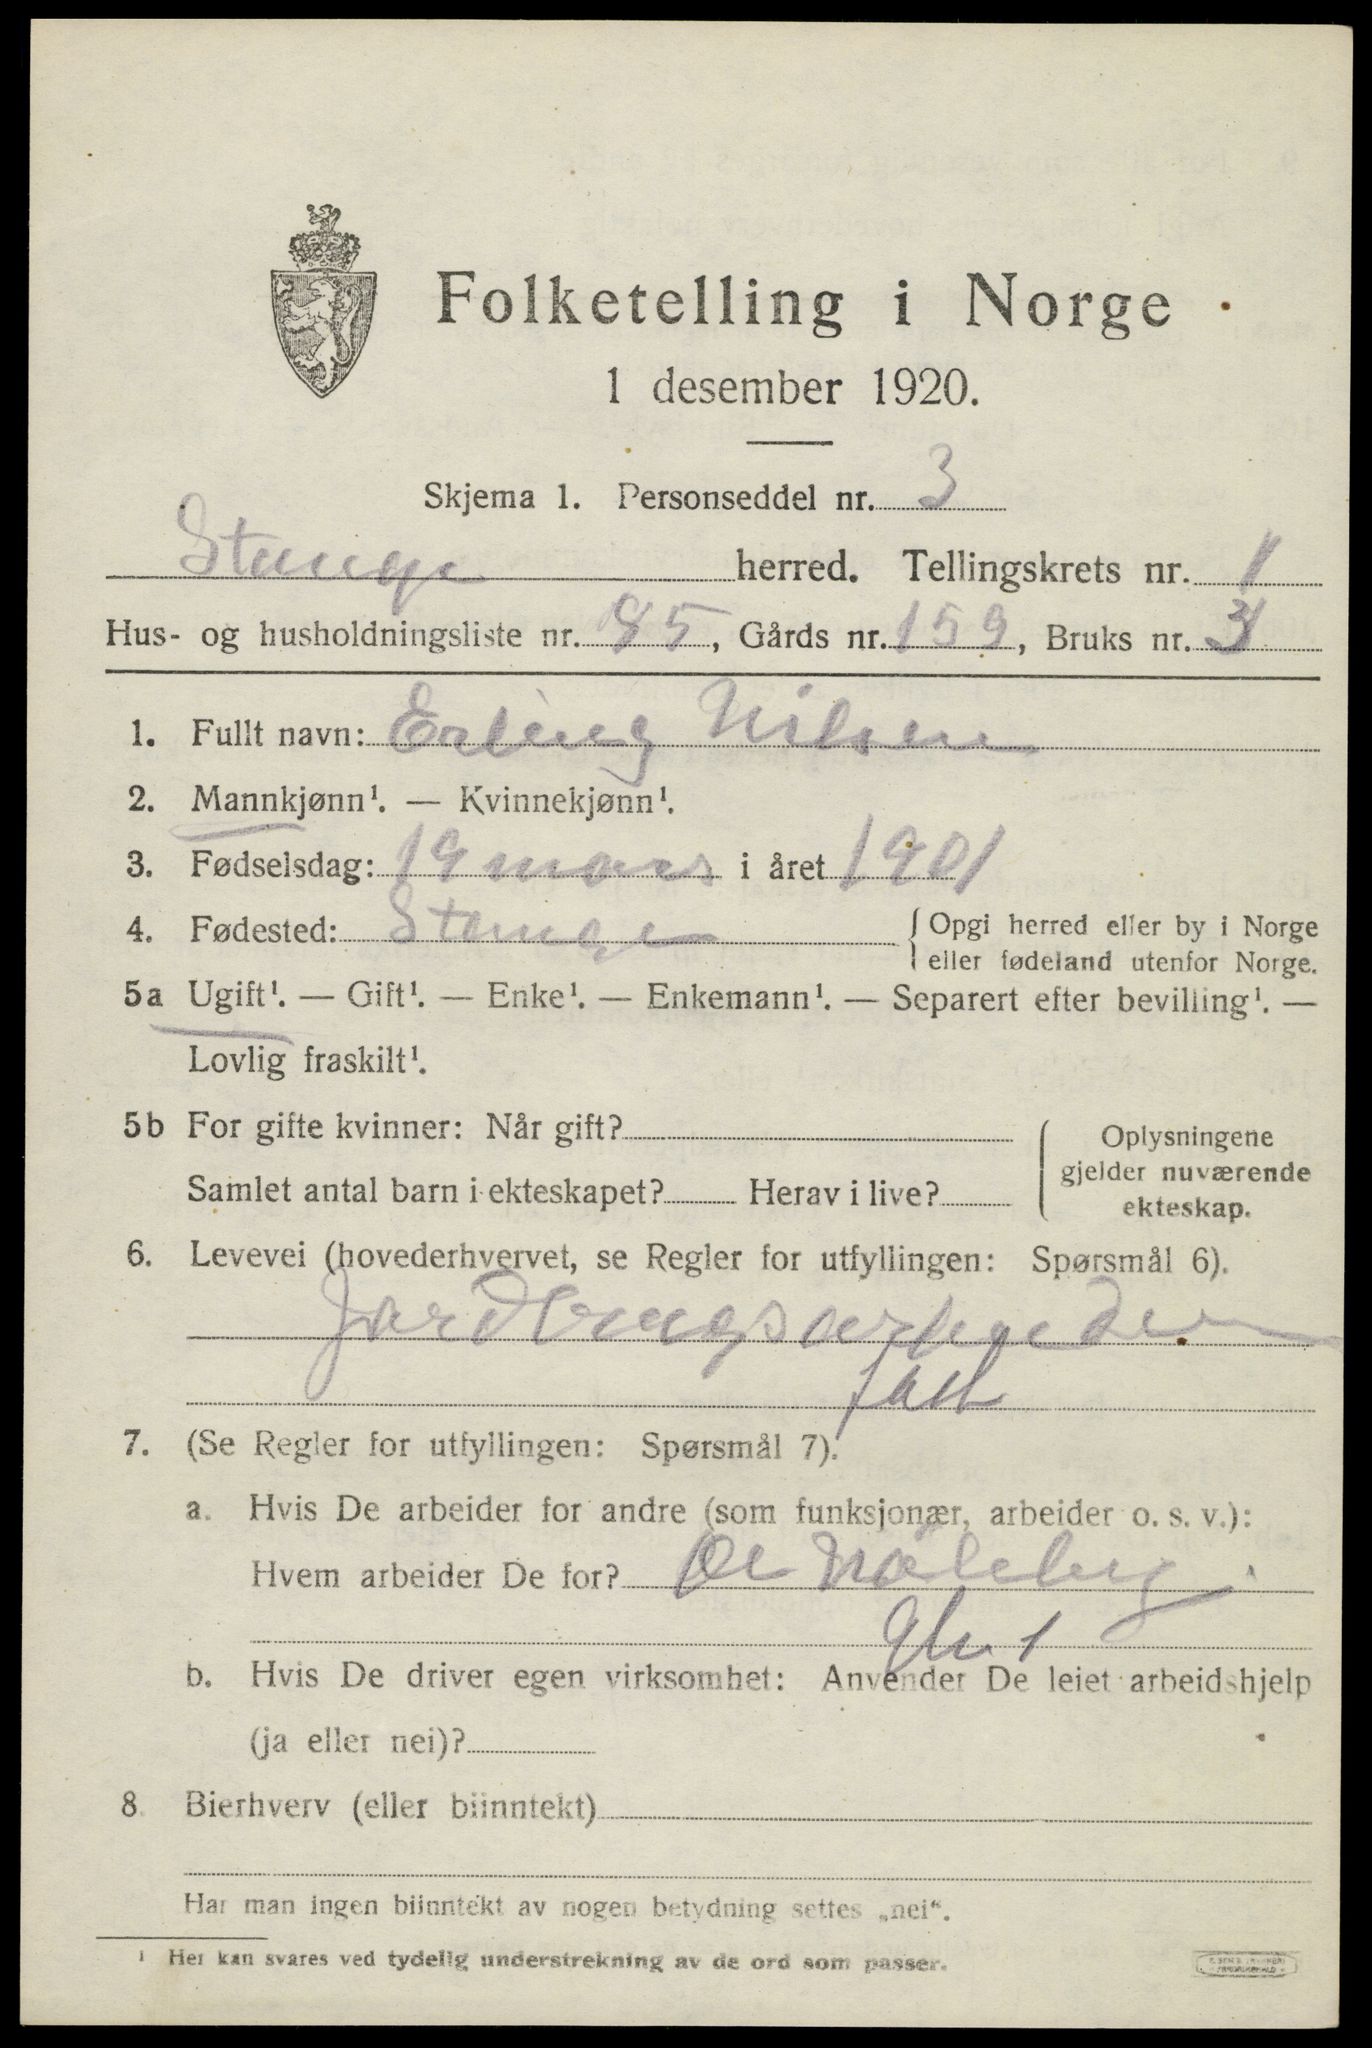 Folketelling i Norge
1 desember 1920.
Skjema 1. Personseddel nr. 3
Stange herred. Tellingskrets nr. 1
Hus- og husholdningsliste nr. 85, Gårds nr. 159, Bruks nr. 31
1. Fullt navn: Erling Nilsen
2. Mannkjønn¹. — Kvinnekjønn¹.
3. Fødselsdag: 19 mars i året 1901
4. Fødested: Stange { Opgi herred eller by i Norge
eller fødeland utenfor Norge.
5a Ugift¹. — Gift¹. — Enke¹. — Enkemann¹. — Separert efter bevilling¹. —
Lovlig fraskilt¹.
5b For gifte kvinner: Når gift?
Samlet antal barn i ekteskapet? Herav i live?
{ Oplysningene
gjelder nuværende
ekteskap.
6. Levevei (hovederhvervet, se Regler for utfyllingen: Spørsmål 6).
Jordbrugsarbeider
fast
7. (Se Regler for utfyllingen: Spørsmål 7).
a. Hvis De arbeider for andre (som funksjonær, arbeider o. s. v.):
Hvem arbeider De for? Ole
b. Hvis De driver egen virksomhet: Anvender De leiet arbeidshjelp
(ja eller nei)?
8. Bierhverv (eller biinntekt)
Har man ingen biinntekt av nogen betydning settes „nei“.
¹ Her kan svares ved tydelig understrekning av de ord som passer.